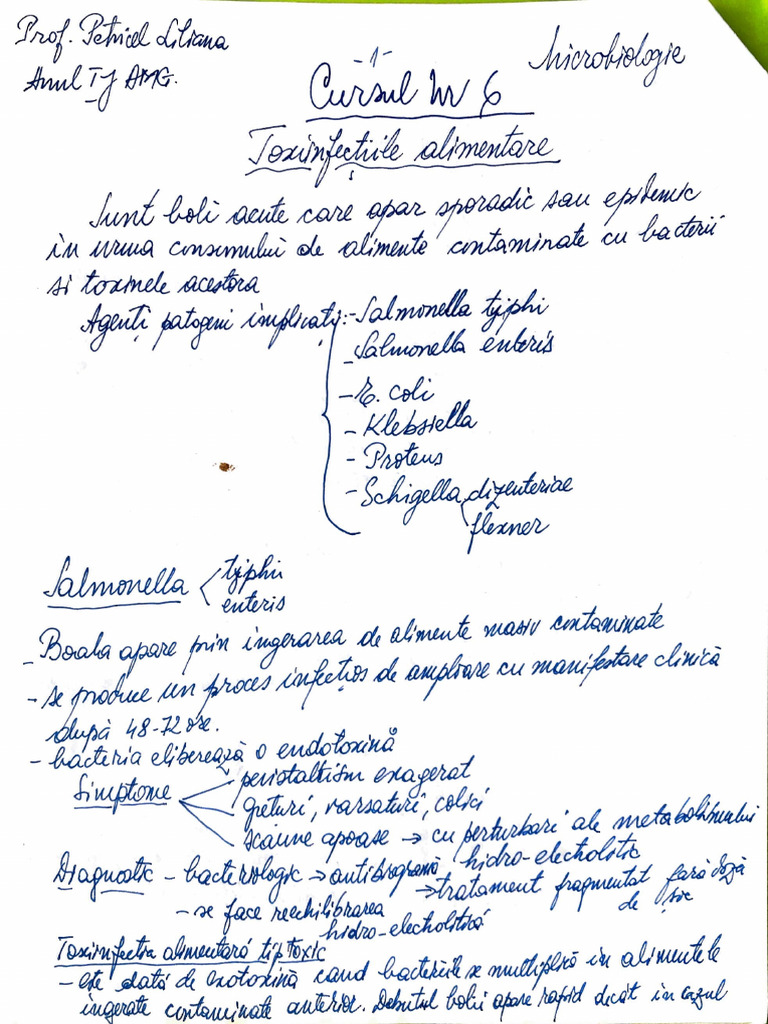 Prof. Petricel Liliana
Anul I J AMG.
-1-
Microbiologie
Cursul Nr 6
Toxiinfecțiile alimentare
Sunt boli acute care apar sporadic sau epidemic
în urma consumului de alimente contaminate cu bacterii
si toxinele acestora
Agenți patogeni implicați:
- Salmonella tyjphi
- Salmonella enteris
- E. coli
- Klebsiella
- Proteus
- Schigella dizenteriae
flexner
Salmonella
tyjphi
enteris
- Boala apare prin ingerarea de alimente masiv contaminate
- se produce un proces infecțios de amploare cu manifestare clinică
după 48-72 ore.
- bacteria eliberează o endotoxină
Simptome
peristaltism exagerat
greturi, varsaturi, colici
scaune apoase → cu perturbari ale metabolismului
hidro-electrolitic
Diagnostic - bacteriologic → antibiogramă
→ tratament fragmentat fară doză
de șoc
- se face reechilibrarea
hidro-electrolitică
Toxiinfectia alimentară tip toxic
- este dată de exotoxină cand bacteriile se multiplică in alimentele
ingerate contaminate anterior. Debutul bolii apare rapid decât in cazul